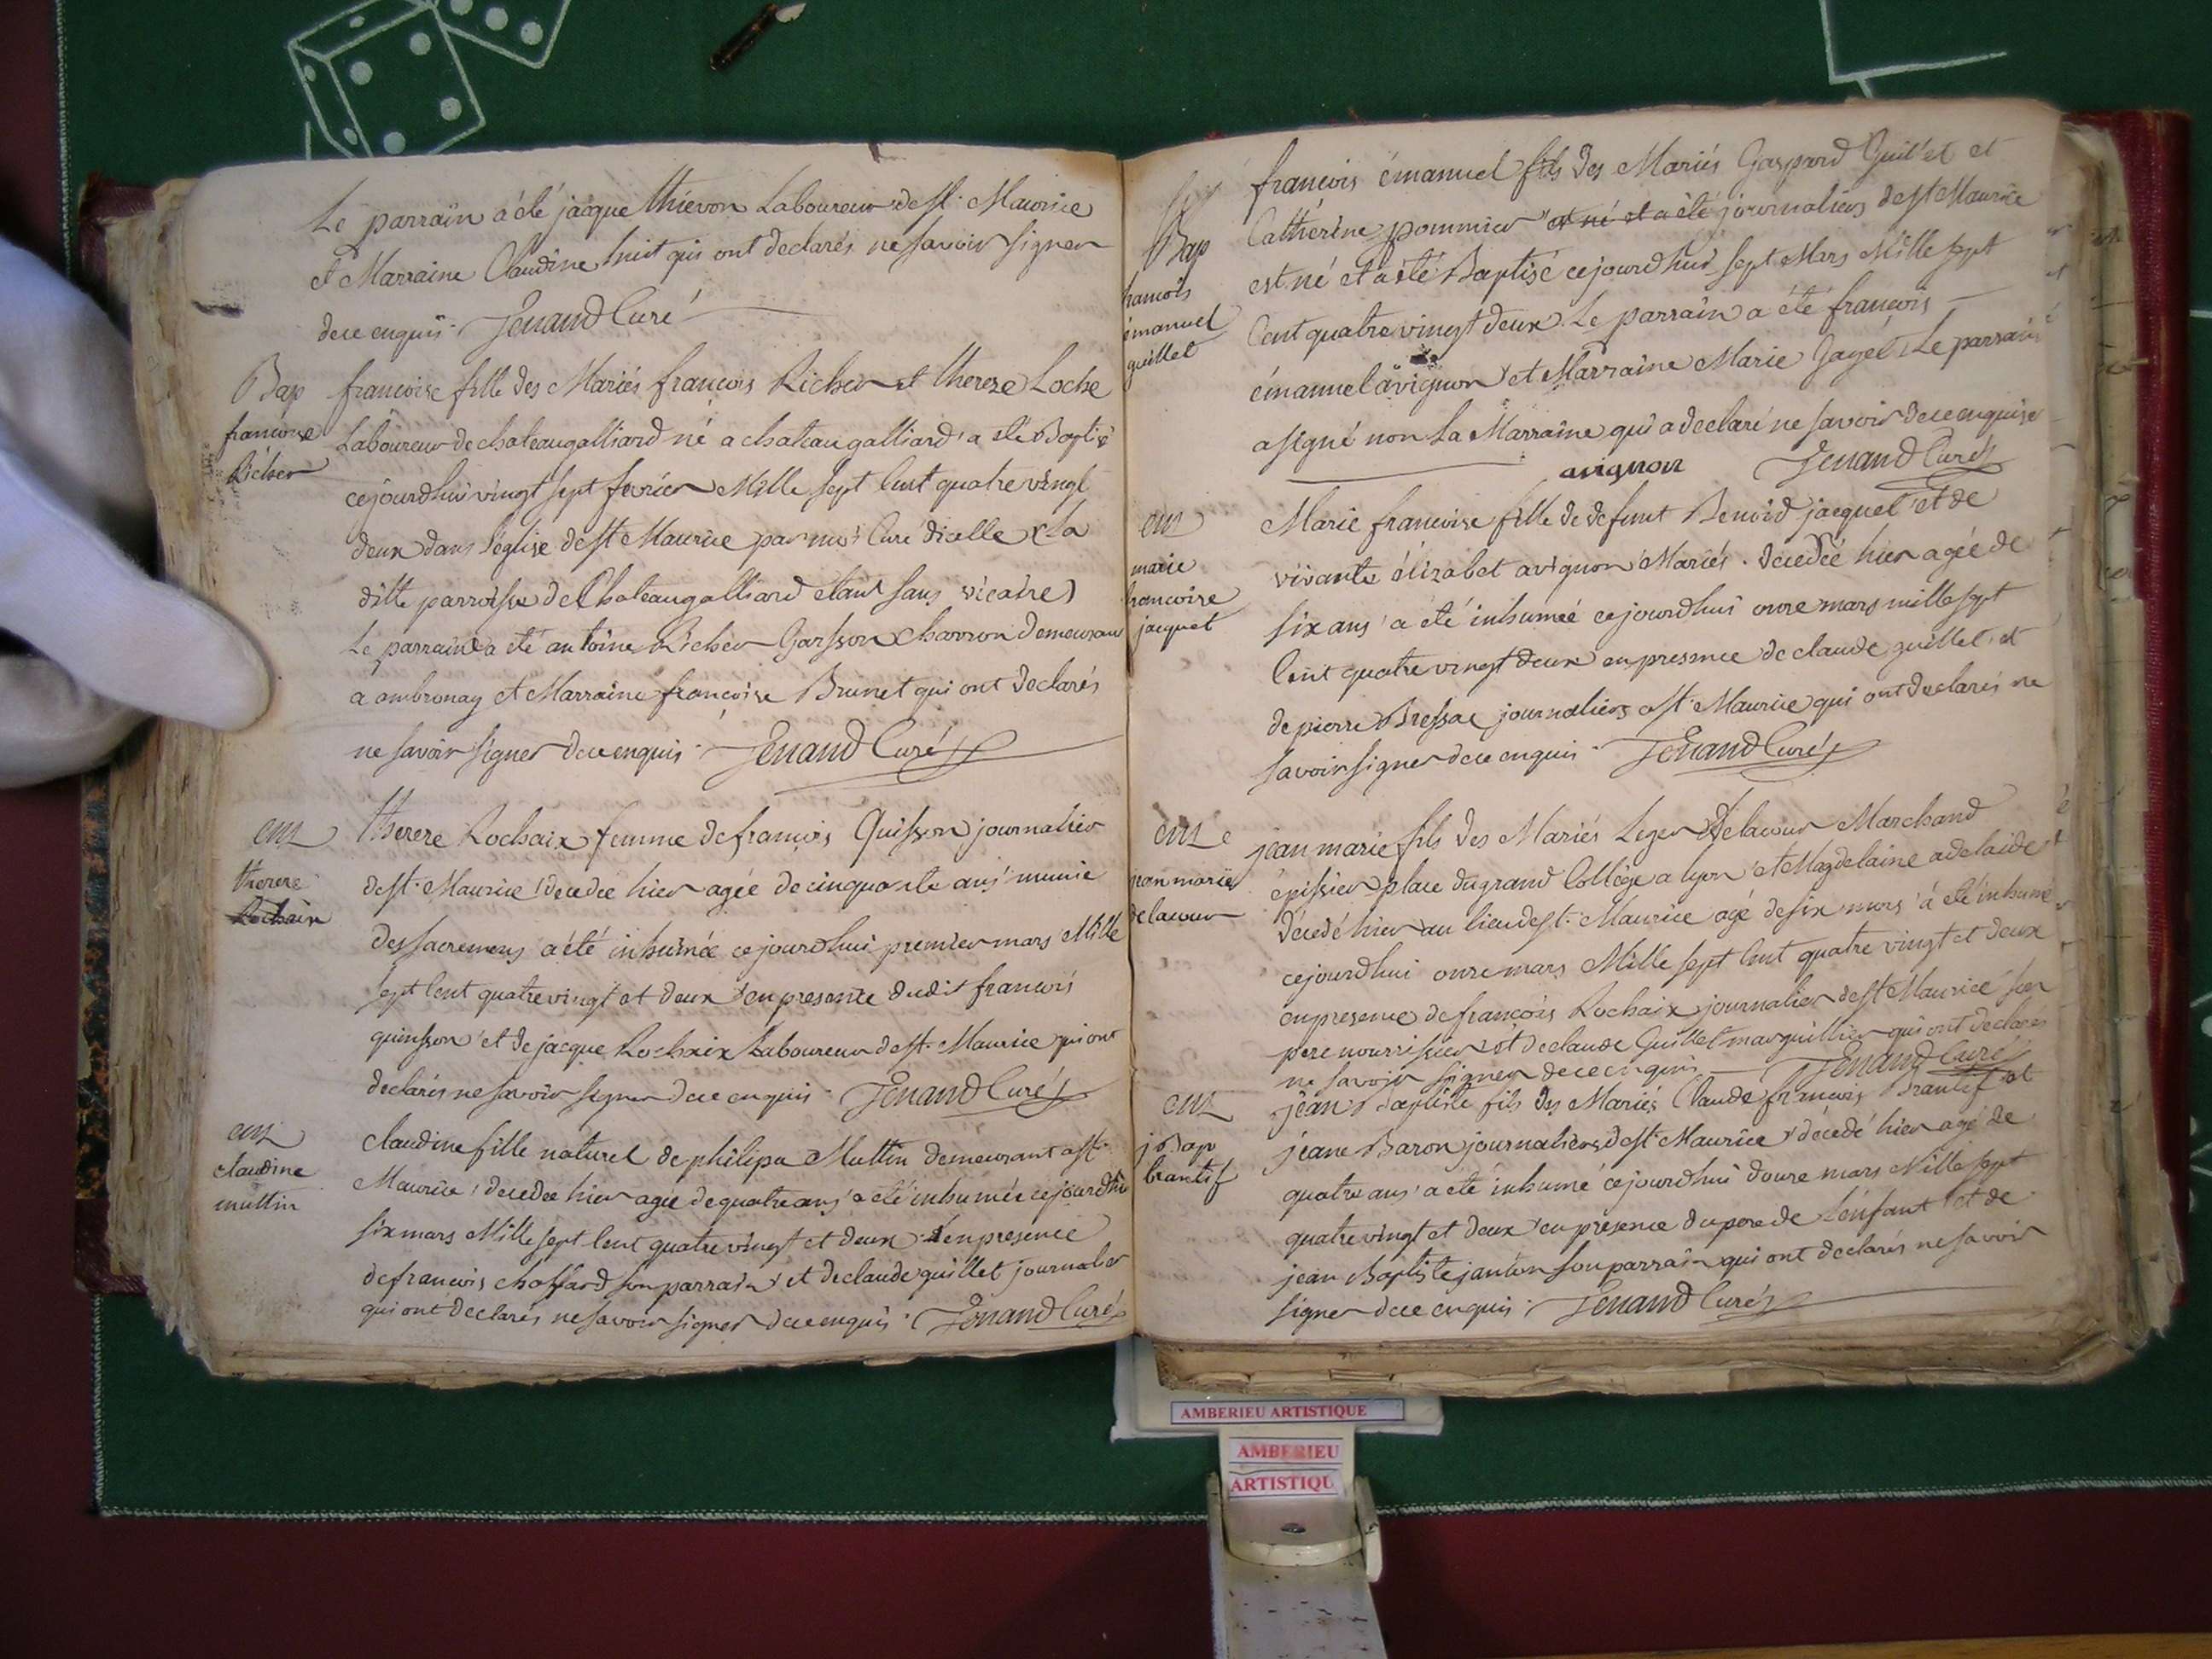 Le parrain a été jacque thievon Laboureur de st. Maurice
et Marraine Claudine huit qui ont declarés ne savoir signer
de ce enquis. Jenand Curé
Bap
francoise
Richer
francoise fille des Mariés francois Richer et therese Loche
Laboureur de chateaugalliard né a chateau galliard a été Baptisé
cejourdhui vingt sept fevrier Mille sept Cent quatre vingt
deux dans l'église de st Maurice par moi Curé dicelle (La
ditte parroisse de Chateaugalliard etant sans vicaire)
Le parrain a été antoine Richer Garsson charron demeurant
a ambronay et Marraine francoise Brunet qui ont declarés
ne savoir signer de ce enquis. Jenand Curé
em
therese
Rochaix
therese Rochaix femme de francois Quisson journalier
de st. Maurice decedee hier agée de cinquante ans munie
des sacremens a été inhumée cejourdhui premier mars Mille
sept Cent quatrevingt et deux en presence dudit francois
quinsson et de jacque Rochaix Laboureur de st. Maurice qui ont
declarés ne savoir signer de ce enquis. Jenand Curé
em
claudine
muttin
claudine fille naturel de philipa Muttin demeurant a st.
Maurice decedee hier agee de quatre ans a été inhumée cejourdhui
six mars Mille sept Cent quatre vingt et deux en presence
de francois choffard son parrain et de claude guillet journalier
qui ont declarés ne savoir signer de ce enquis. Jenand Curé
Bap
francois
émanuel
guillet
francois émanuel fils des Mariés Gaspard Guillet et
Cathérine pommier et né et a été journaliers de st Maurice
est né et a été Baptisé cejourdhui sept Mars Mille sept
Cent quatre vingt deux. Le parrain a été francois
émanuel avignon et Marraine Marie Gayet Le parrain
a signé non La Marraine qui a declaré ne savoir de ce enquise
avignon Jenand Curé
em
marie
francoise
jacquet
Marie francoise fille de defunt Benoid jacquet et de
vivante élizabet avignon Mariés. decedée hier agée de
six ans a été inhumée cejourdhui onze mars mille sept
Cent quatre vingt deux en presence de claude guillet et
de pierre Bressac journaliers a st. Maurice qui ont declarés ne
savoir signer de ce enquis. Jenand Curé
em
jean marie
delacour
jean marie fils des Mariés Leger Delacour Marchand
épissier place du grand Collège a lyon et Magdelaine adelaide
décédé hier au lieu de st. Maurice agé de six mois a été inhumé
cejourdhui onze mars Mille sept Cent quatre vingt et deux
en presence de francois Rochaix journalier de st Maurice son
pere nourrissier et de claude Guillet marguillier qui ont declarés
ne savoir signer de ce enquis Jenand Curé
em
j Bap
brantif
jean Baptiste fils des Mariés Claude francois Brantif et
jeane Baron journaliers de st. Maurice décédé hier agé de
quatre ans a été inhumé cejourdhui douze mars Mille sept
quatre vingt et deux en presence du pere de L'énfant et de
jean Baptiste janton son parrain qui ont declarés ne savoir
signer de ce enquis. Jenand Curé
AMBERIEU ARTISTIQUE
AMBERIEU
ARTISTIQU